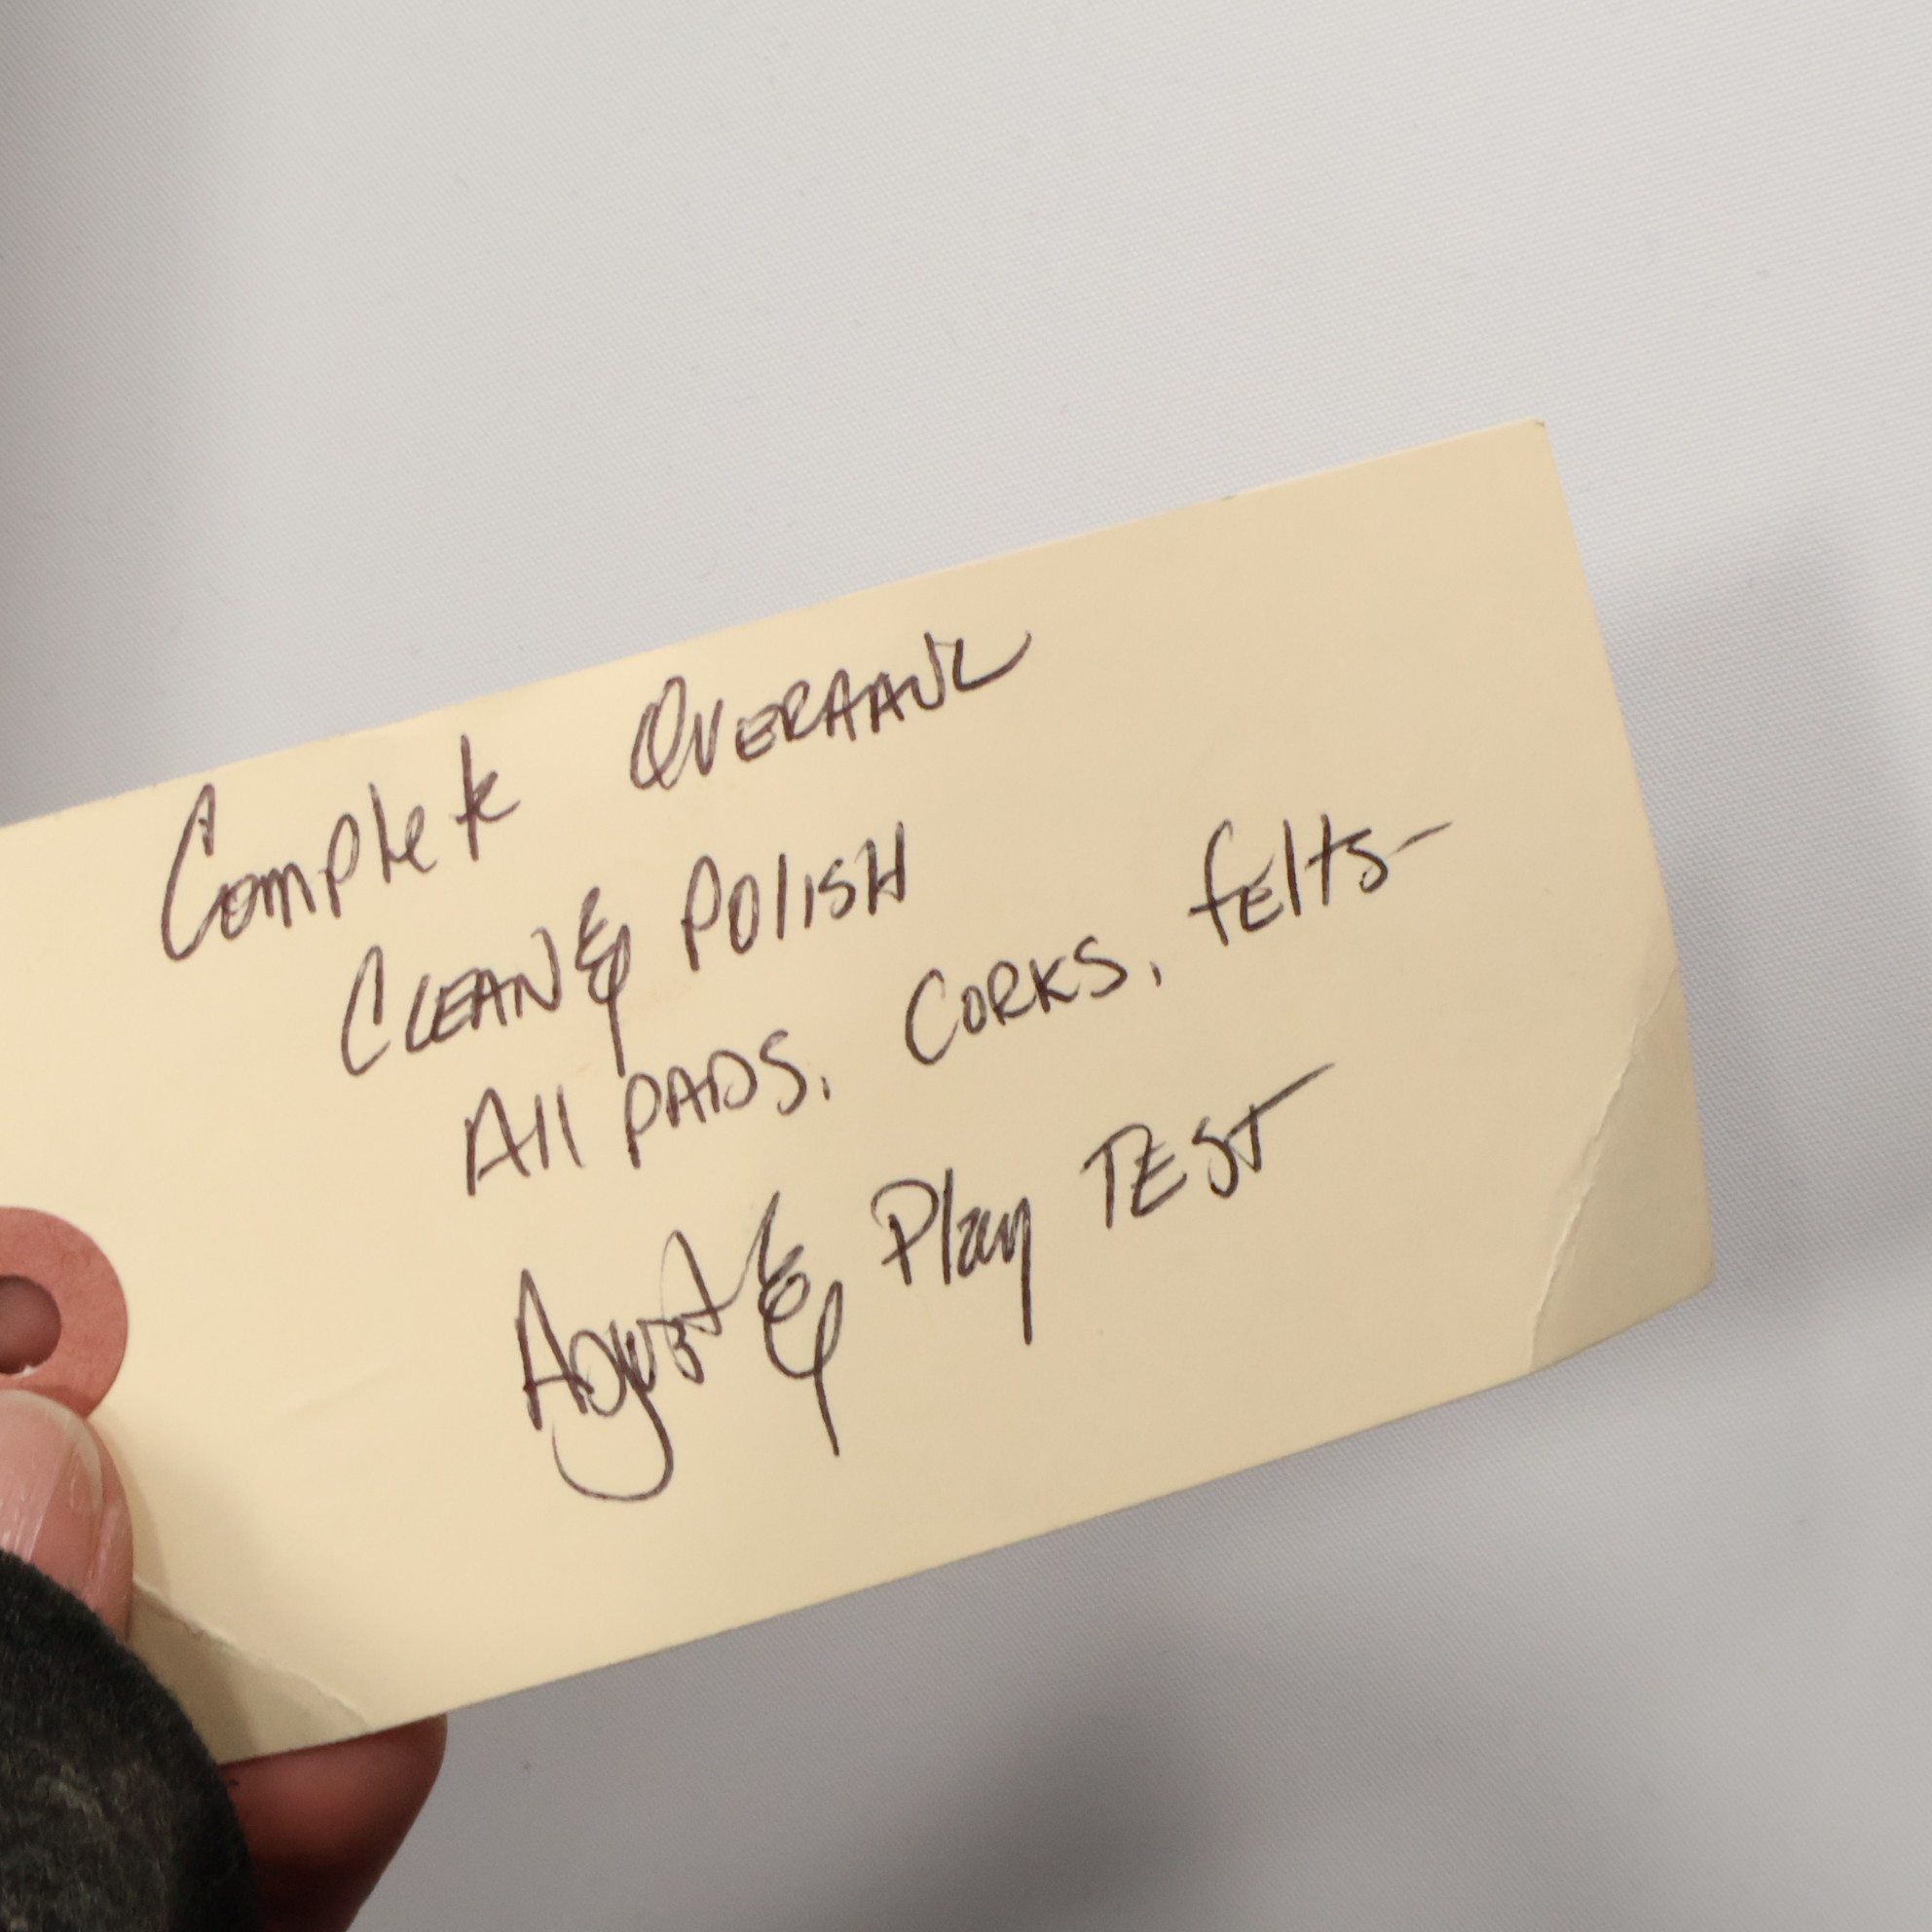 Complete OVERHAUL
CLEAN & POLISH
All PADS, CORKS, felts-
Adjust & Play TEST